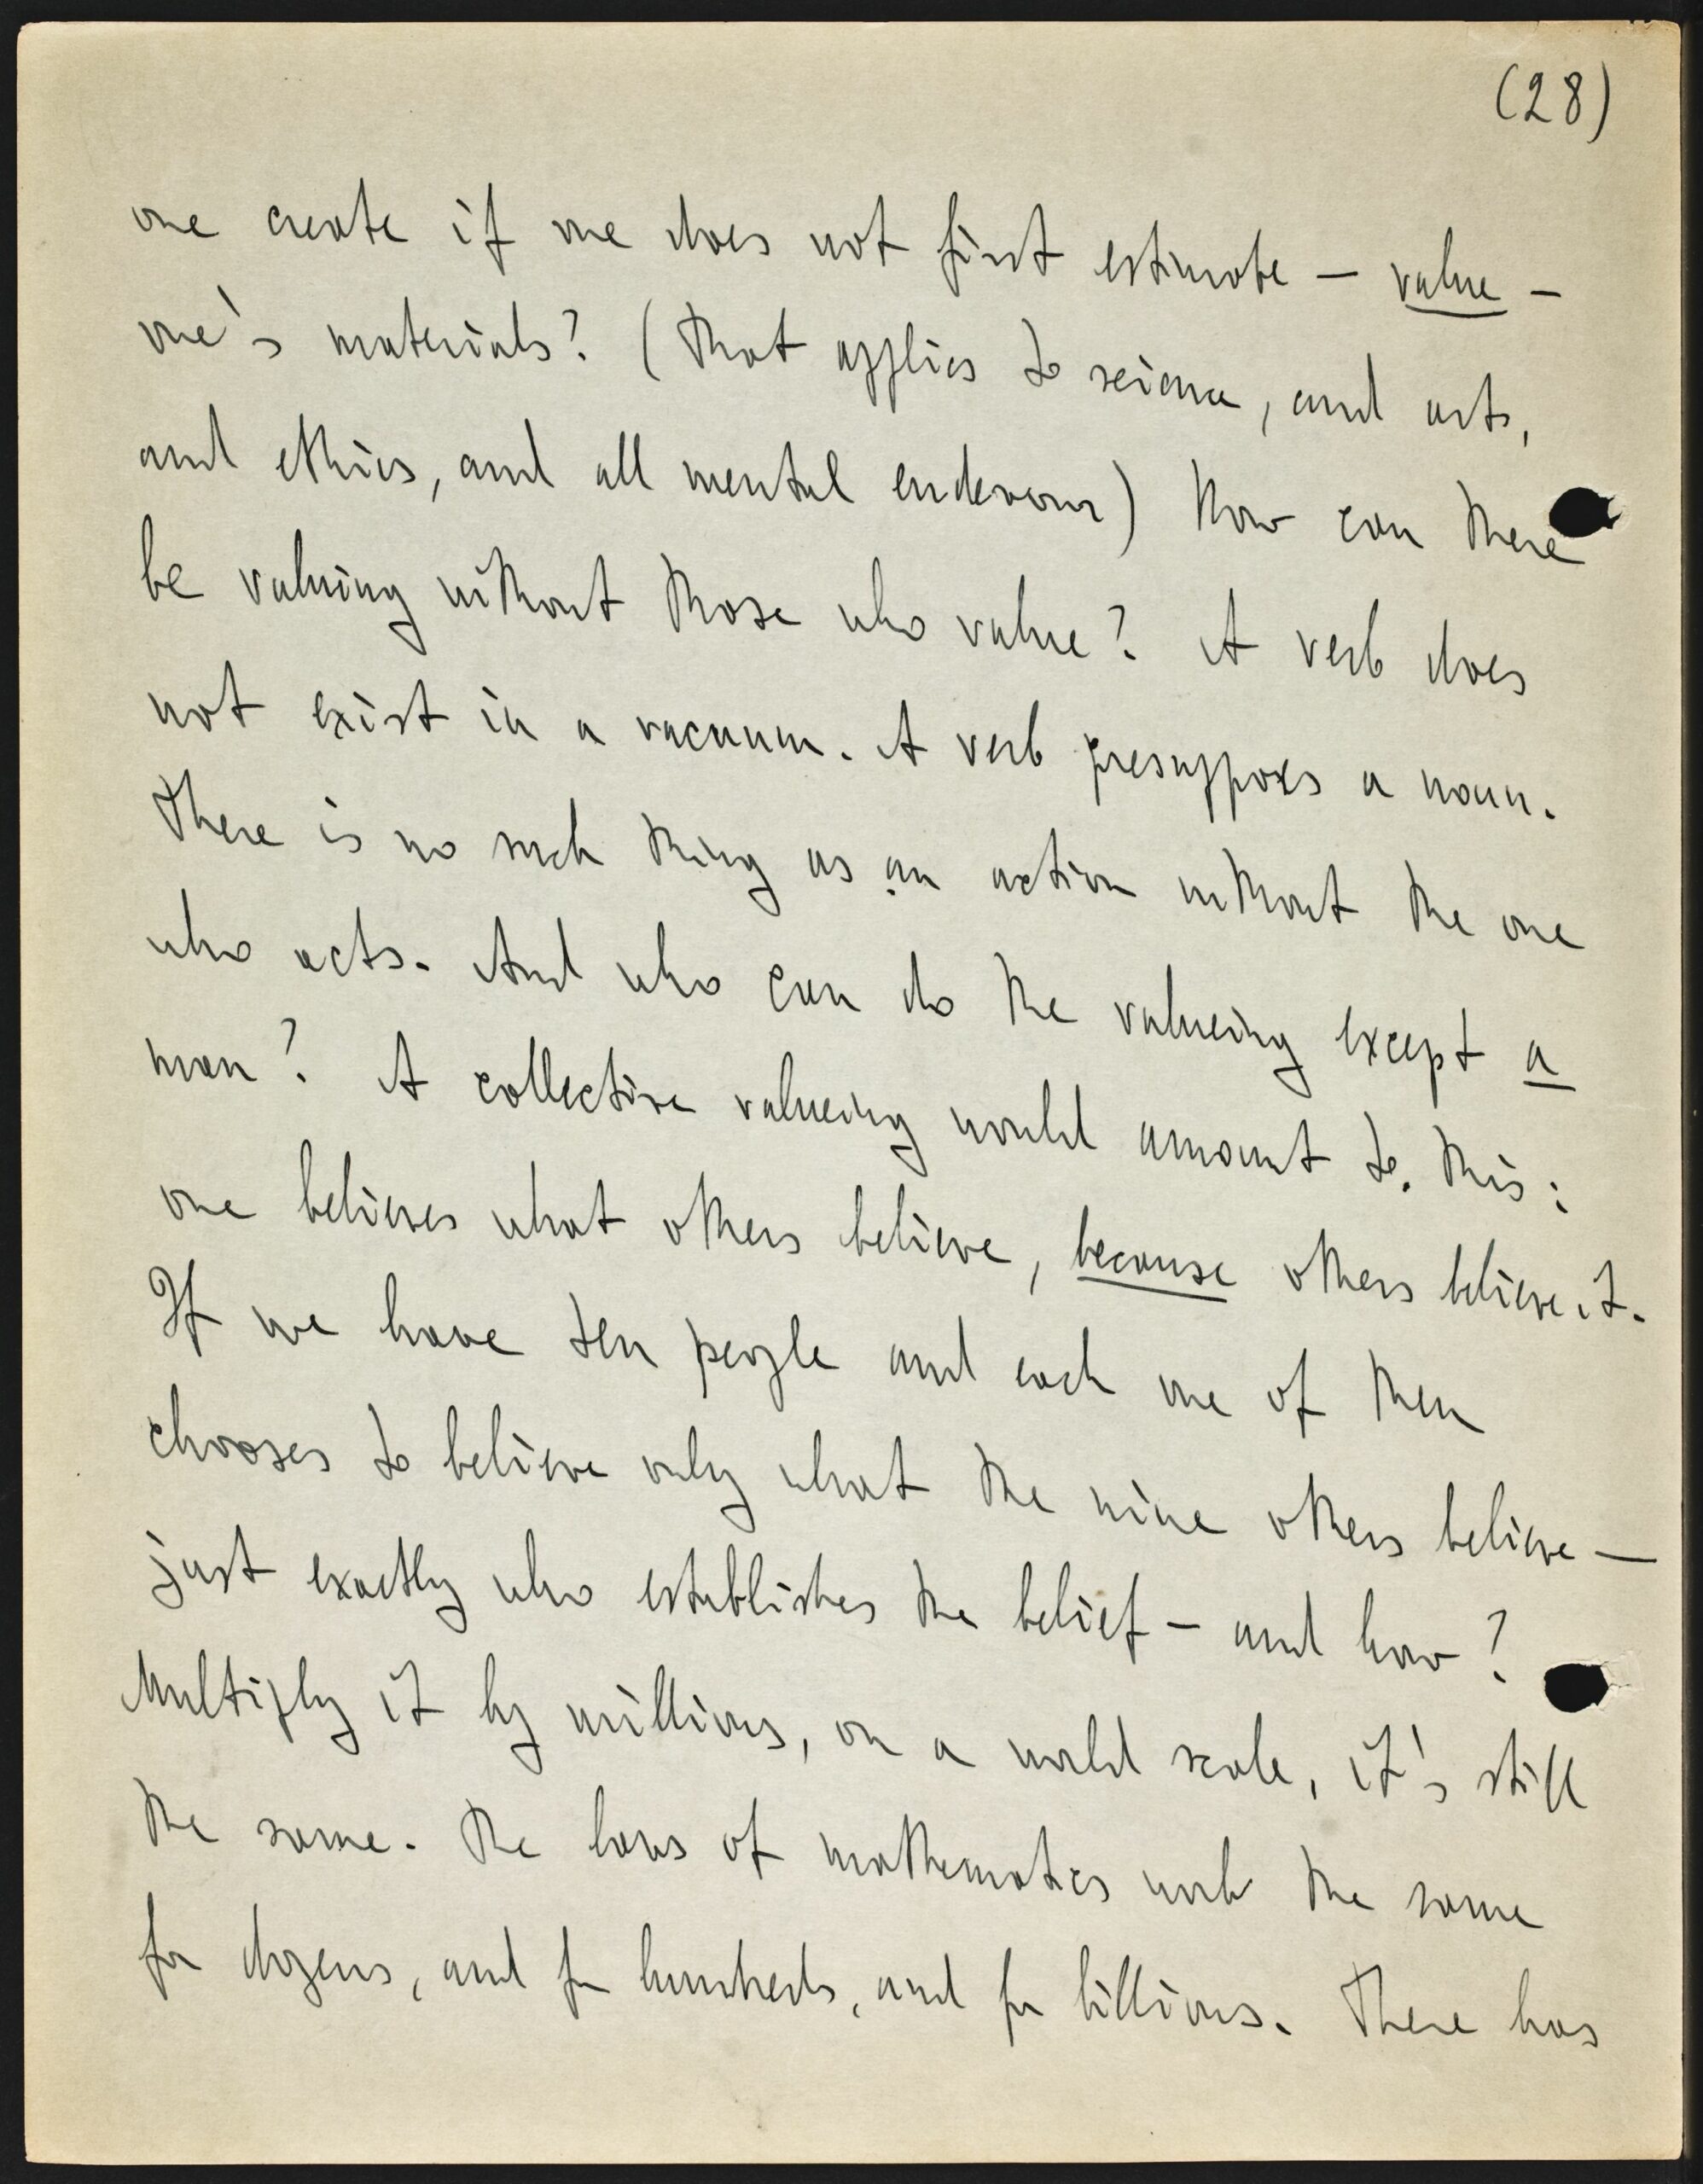 (28)
one create if one does not first estimate — value —
one's materials? (That applies to science, and arts,
and ethics, and all mental endevour) How can there
be valuing without those who value? A verb does
not exist in a vacuum. A verb presupposes a noun.
There is no such thing as an action without the one
who acts. And who can do the valueing except a
man? A collective valueing would amount to this:
one believes what others believe, because others believe it.
If we have ten people and each one of them
chooses to believe only what the nine others believe —
just exactly who establishes the belief — and how?
Multiply it by millions, on a world scale, it's still
the same. The laws of mathematics work the same
for dozens, and for hundreds, and for billions. There has